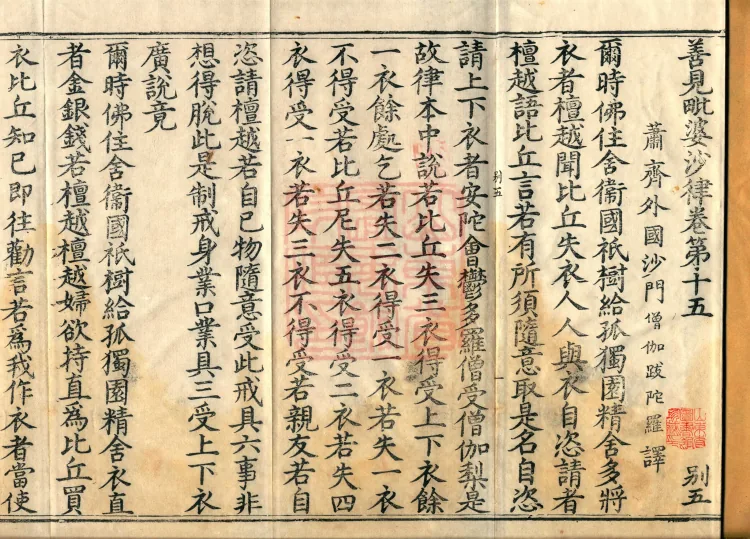 善見毗婆沙律卷第十五
别五
蕭齊外國沙門僧伽跋陀羅譯
爾時佛住舍衞國祇樹給孤獨園精舍多將
衣者檀越聞比丘失衣人人與衣自恣請者
檀越語比丘言若有所須隨意取是名自恣
别五
請上下衣者安陀會鬱多羅僧受僧伽梨是
故律本中說若比丘失三衣得受上下衣餘
一衣餘處乞若失二衣得受一衣若失一衣
不得受若比丘尼失五衣得受二衣若失四
衣得受一衣若失三衣不得受若親友若自
恣請檀越若自己物隨意受此戒具六事非
想得脫此是制戒身業口業具三受上下衣
廣說竟
爾時佛住舍衞國祇樹給孤獨園精舍衣直
者金銀錢若檀越檀越婦欲持直為比丘買
衣比丘知已即往勸言若為我作衣者當使